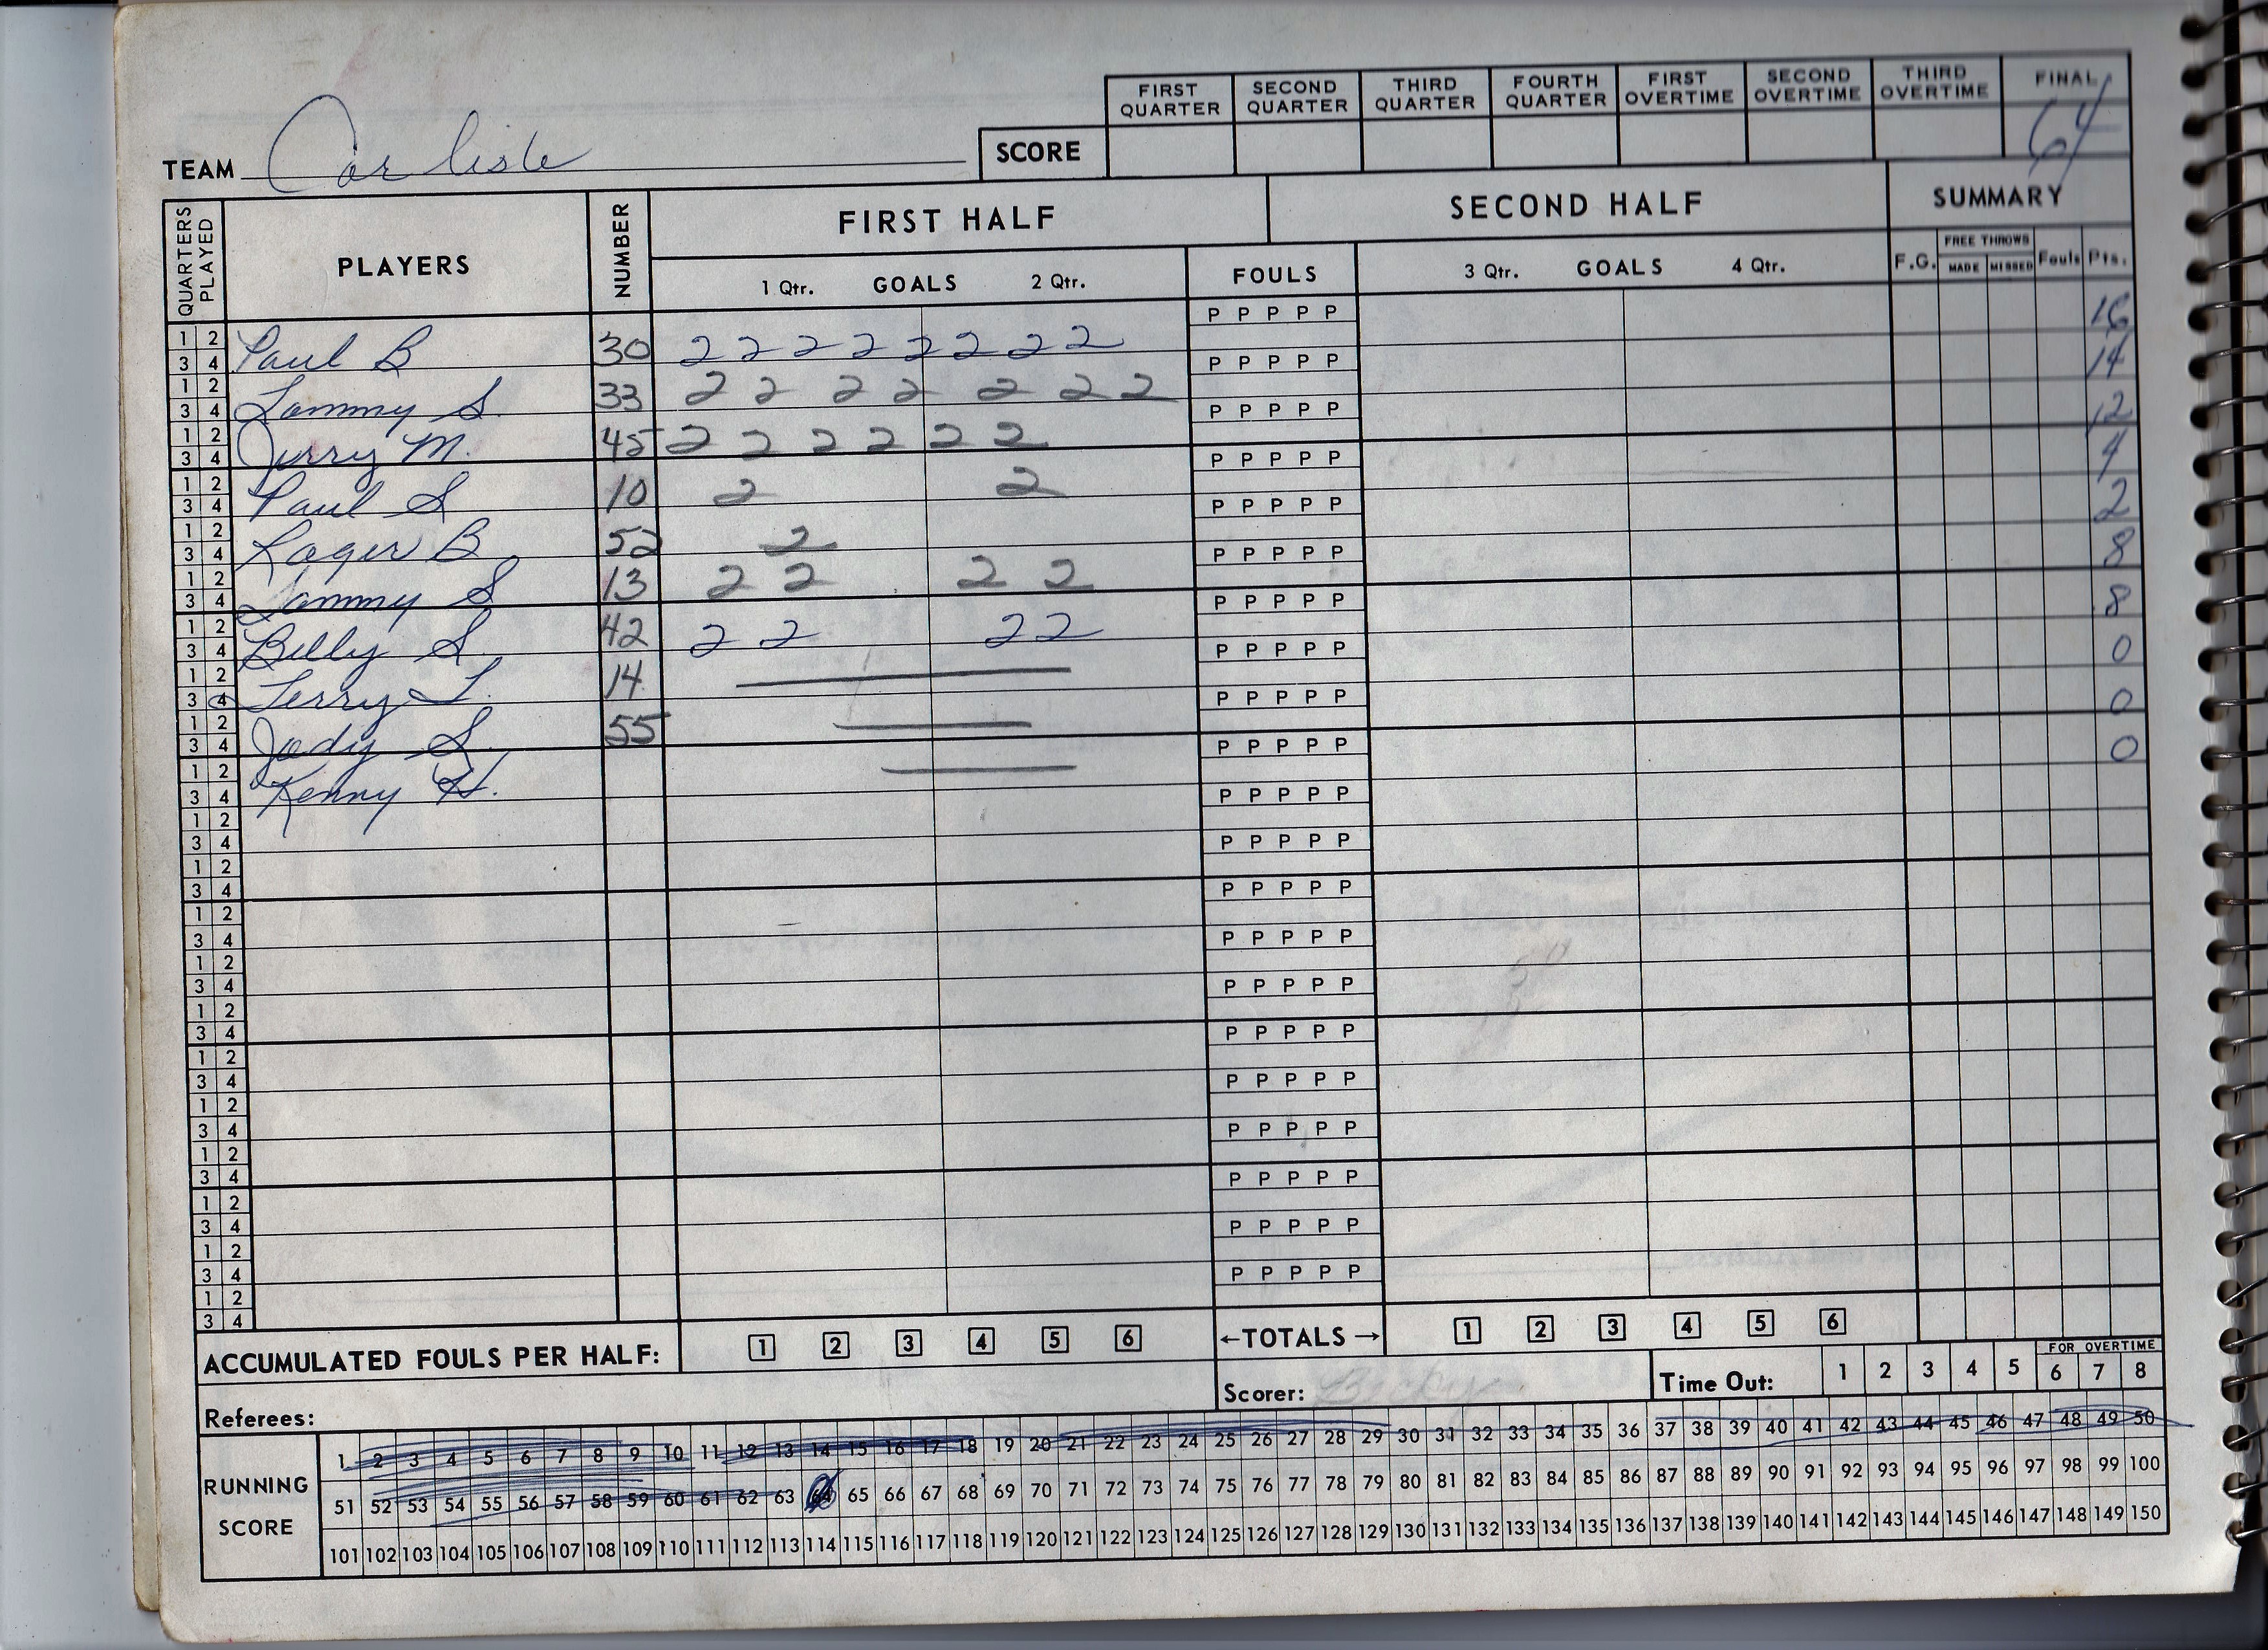 FIRST QUARTER SECOND QUARTER THIRD QUARTER FOURTH QUARTER FIRST OVERTIME SECOND OVERTIME THIRD OVERTIME FINAL
TEAM Carlisle SCORE 64
QUARTERS PLAYED PLAYERS NUMBER FIRST HALF SECOND HALF SUMMARY
1 Qtr. GOALS 2 Qtr. FOULS 3 Qtr. GOALS 4 Qtr. F.G. FREE THROWS MADE MISSED Fouls Pts.
1 2 3 4 Paul B 30 2 2 2 2 2 2 2 2 P P P P P 16
1 2 3 4 Sammy S. 33 2 2 2 2 2 2 2 P P P P P 14
1 2 3 4 Jerry M. 45 2 2 2 2 2 2 P P P P P 12
1 2 3 4 Paul S 10 2 2 P P P P P 4
1 2 3 4 Roger B 52 2 P P P P P 2
1 2 3 4 Sammy S 13 2 2 2 2 P P P P P 8
1 2 3 4 Billy S. 42 2 2 2 2 P P P P P 8
1 2 3 4 Terry T. 14 P P P P P 0
1 2 3 4 Jody S. 55 P P P P P 0
1 2 3 4 Kenny H. P P P P P 0
1 2 3 4 P P P P P
1 2 3 4 P P P P P
1 2 3 4 P P P P P
1 2 3 4 P P P P P
1 2 3 4 P P P P P
1 2 3 4 P P P P P
1 2 3 4 P P P P P
1 2 3 4 P P P P P
1 2 3 4 P P P P P
1 2 3 4 P P P P P
1 2 3 4 P P P P P
ACCUMULATED FOULS PER HALF: 1 2 3 4 5 6 ←TOTALS→ 1 2 3 4 5 6
Referees: Scorer: Becky Time Out: 1 2 3 4 5 FOR OVERTIME 6 7 8
RUNNING SCORE
1 2 3 4 5 6 7 8 9 10 11 12 13 14 15 16 17 18 19 20 21 22 23 24 25 26 27 28 29 30 31 32 33 34 35 36 37 38 39 40 41 42 43 44 45 46 47 48 49 50
51 52 53 54 55 56 57 58 59 60 61 62 63 64 65 66 67 68 69 70 71 72 73 74 75 76 77 78 79 80 81 82 83 84 85 86 87 88 89 90 91 92 93 94 95 96 97 98 99 100
101 102 103 104 105 106 107 108 109 110 111 112 113 114 115 116 117 118 119 120 121 122 123 124 125 126 127 128 129 130 131 132 133 134 135 136 137 138 139 140 141 142 143 144 145 146 147 148 149 150